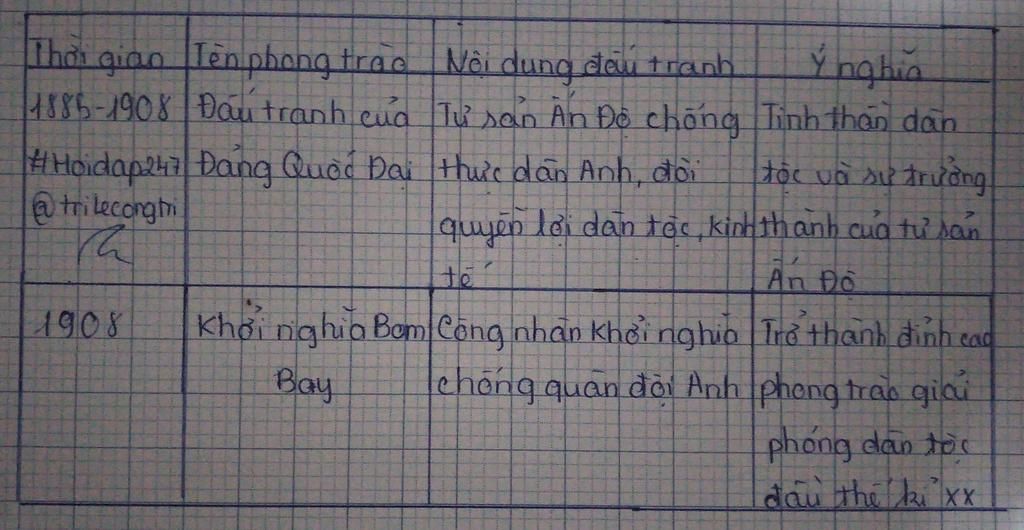 Thời gian Tên phong trào Nội dung đấu tranh Ý nghĩa
1885-1908 Đấu tranh của Tư sản Ấn Độ chống Tinh thần dân
#Hoidap247 Đảng Quốc Đại thực dân Anh, đòi tộc và sự trưởng
@trilecongtri quyền lợi dân tộc, kinh thành của tư sản
tế Ấn Độ
1908 Khởi nghĩa Bom Công nhân khởi nghĩa Trở thành đỉnh cao
Bay chống quân đội Anh phong trào giải
phóng dân tộc
đầu thế kỉ XX